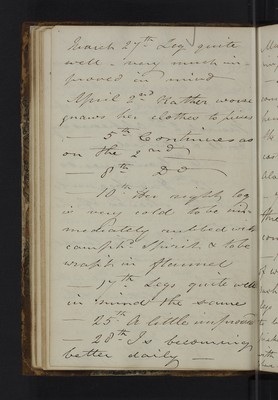 March 27th Leg quite
well & very much im-
proved in mind
April 2nd Rather worse
gnaws her clothes to pieces
— 5th Continues as
on the 2nd
— 8th Do
10th Her right leg
is very cold to be im
mediately rubbed with
camph: Spirit & to be
wrap't in flannel
— 17th Legs quite well
in mind the same
— 25th A little improved
— 28th Is becoming
better daily —